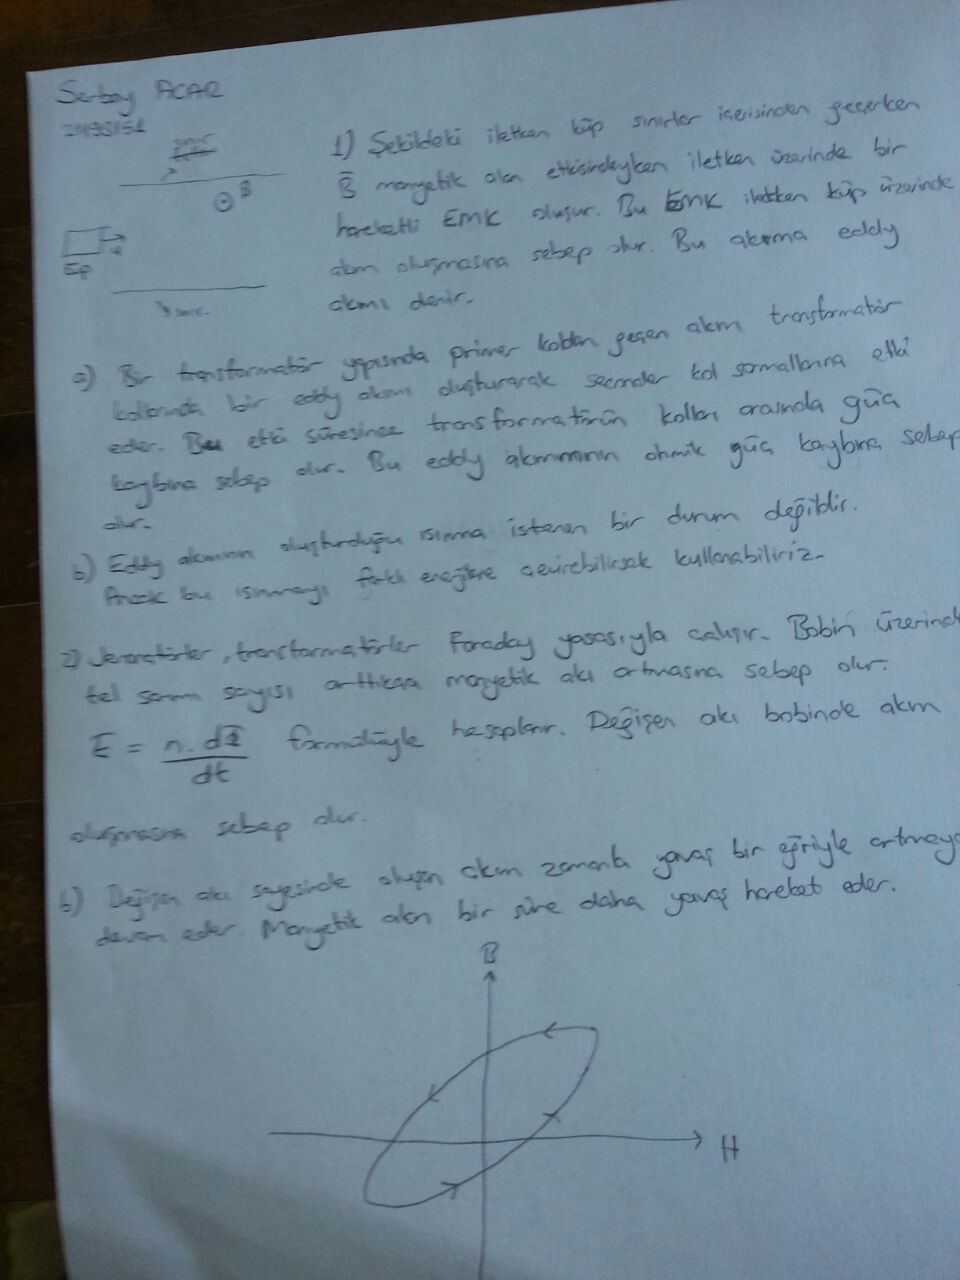 Serbay ACAR
sınır
B
ip
sınır
1) Şekildeki iletken küp sınırlar içerisinden geçerken
B manyetik alan etkisindeyken iletken üzerinde bir
hareketli EMK oluşur. Bu EMK iletken küp üzerinde
akım oluşmasına sebep olur. Bu akıma eddy
akımı denir.
a) Bir transformatör yapısında primer koldan geçen akım transformatör
kollarında bir eddy akımı oluşturarak seconder kol sarmallarına etki
eder. Bu etki süresince transformatörün kolları arasında güç
kaybına sebep olur. Bu eddy akımının ohmik güç kaybına sebep
olur.
b) Eddy akımının oluşturduğu ısınma istenen bir durum değildir.
Ancak bu ısınmayı farklı enerjilere çevirebilirsek kullanabiliriz.
2) Jeneratörler, transformatörler Faraday yasasıyla çalışır. Bobin üzerindek
tel sarım sayısı arttıkça manyetik akı artmasına sebep olur.
E = n.dΦ/dt formülüyle hesaplanır. Değişen akı bobinde akım
oluşmasına sebep olur.
b) Değişen akı sayesinde oluşan akım zamanla yavaş bir eğriyle artmaya
devam eder. Manyetik alan bir süre daha yavaş hareket eder.
B
H